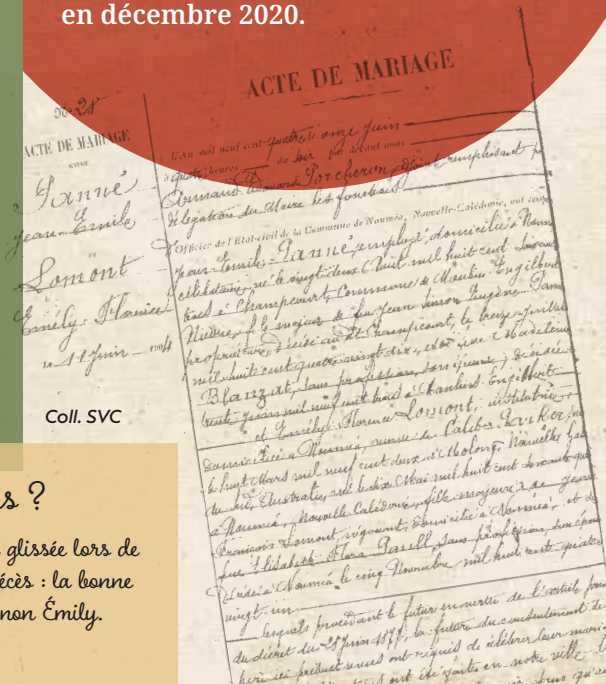 en décembre 2020.
ACTE DE MARIAGE
No 28
ACTE DE MARIAGE
Panné
Jean-Emile
Lomont
Emély-Florence
11 Juin 1904
L'An mil neuf cent quatre le onze Juin
à quatre heures du soir par devant nous
Armand Porcheron, adjoint remplissant p
délégation du Maire les fonctions
Officier de l'Etat-civil de la Commune de Nouméa, Nouvelle-Calédonie, ont comp
Jean-Emile Panné, employé, domicilié à Noum
célibataire, né le vingt deux mil huit cent
à Champcourt, Commune de Moulins Engilbert
Nièvre, fils majeur de feu Jean Simon Eugène Pann
propriétaire, décédé au dit Champcourt, le treize Juillet
mil huit cent quatre vingt dix, et de feue Madeleine
Blanzat, sans profession, son épouse, décédée
trente Juin mil neuf cent trois à Moulins Engilbert
et Emély Florence Lomont, institutrice,
domiciliée à Nouméa, veuve de Caleb
le huit Mars mil neuf cent deux à Molong, Nouvelle Gal
du Sud, Australie, née le dix Mai mil huit cent soixante
à Nouméa, Nouvelle Calédonie, fille majeure de
François Lomont, domicilié à Nouméa, et de
feue Elisabeth Flora sans profession, son épouse
décédée à Nouméa le cinq Novembre mil huit cent quatre
vingt un
Lesquels procédant le futur en vertu de l'article
du décret du 28 Juin 1877, la future du consentement de
père ici présent nous ont requis de célébrer leur maria
ont été faites en notre ville
Coll. SVC
s ?
glissée lors de
écès : la bonne
non Émily.